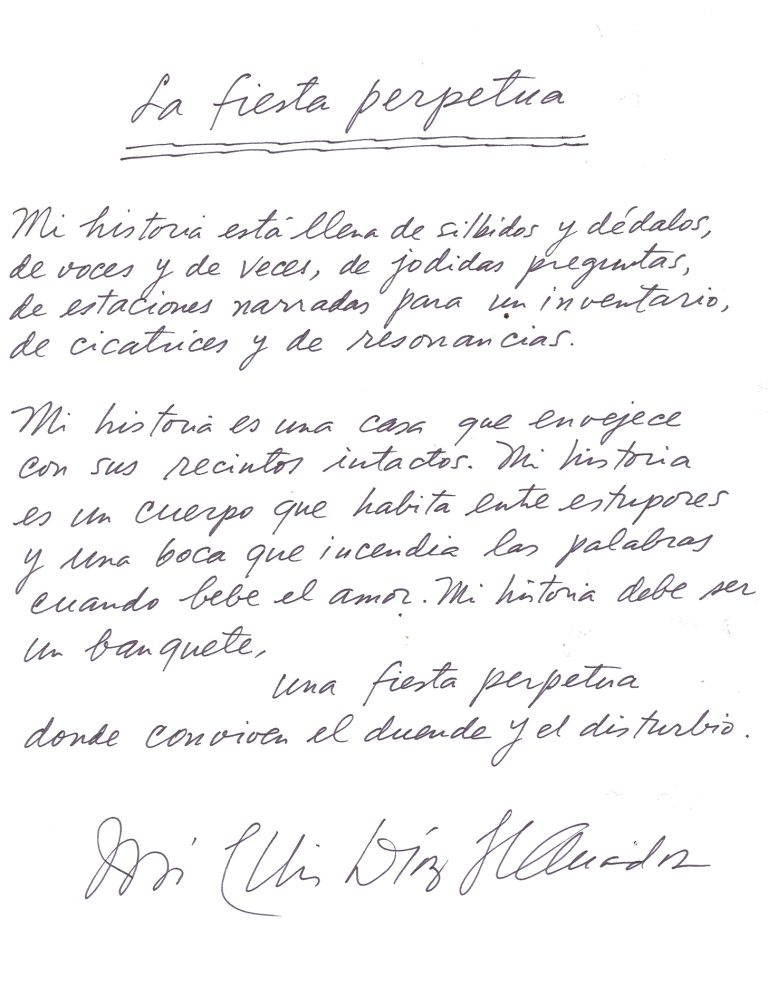 La fiesta perpetua
Mi historia está llena de silbidos y dédalos,
de voces y de veces, de jodidas preguntas,
de estaciones narradas para un inventario,
de cicatrices y de resonancias.
Mi historia es una casa que envejece
con sus recintos intactos. Mi historia
es un cuerpo que habita entre estupores
y una boca que incendia las palabras
cuando bebe el amor. Mi historia debe ser
un banquete,
una fiesta perpetua
donde conviven el duende y el disturbio.
José Luis Díaz